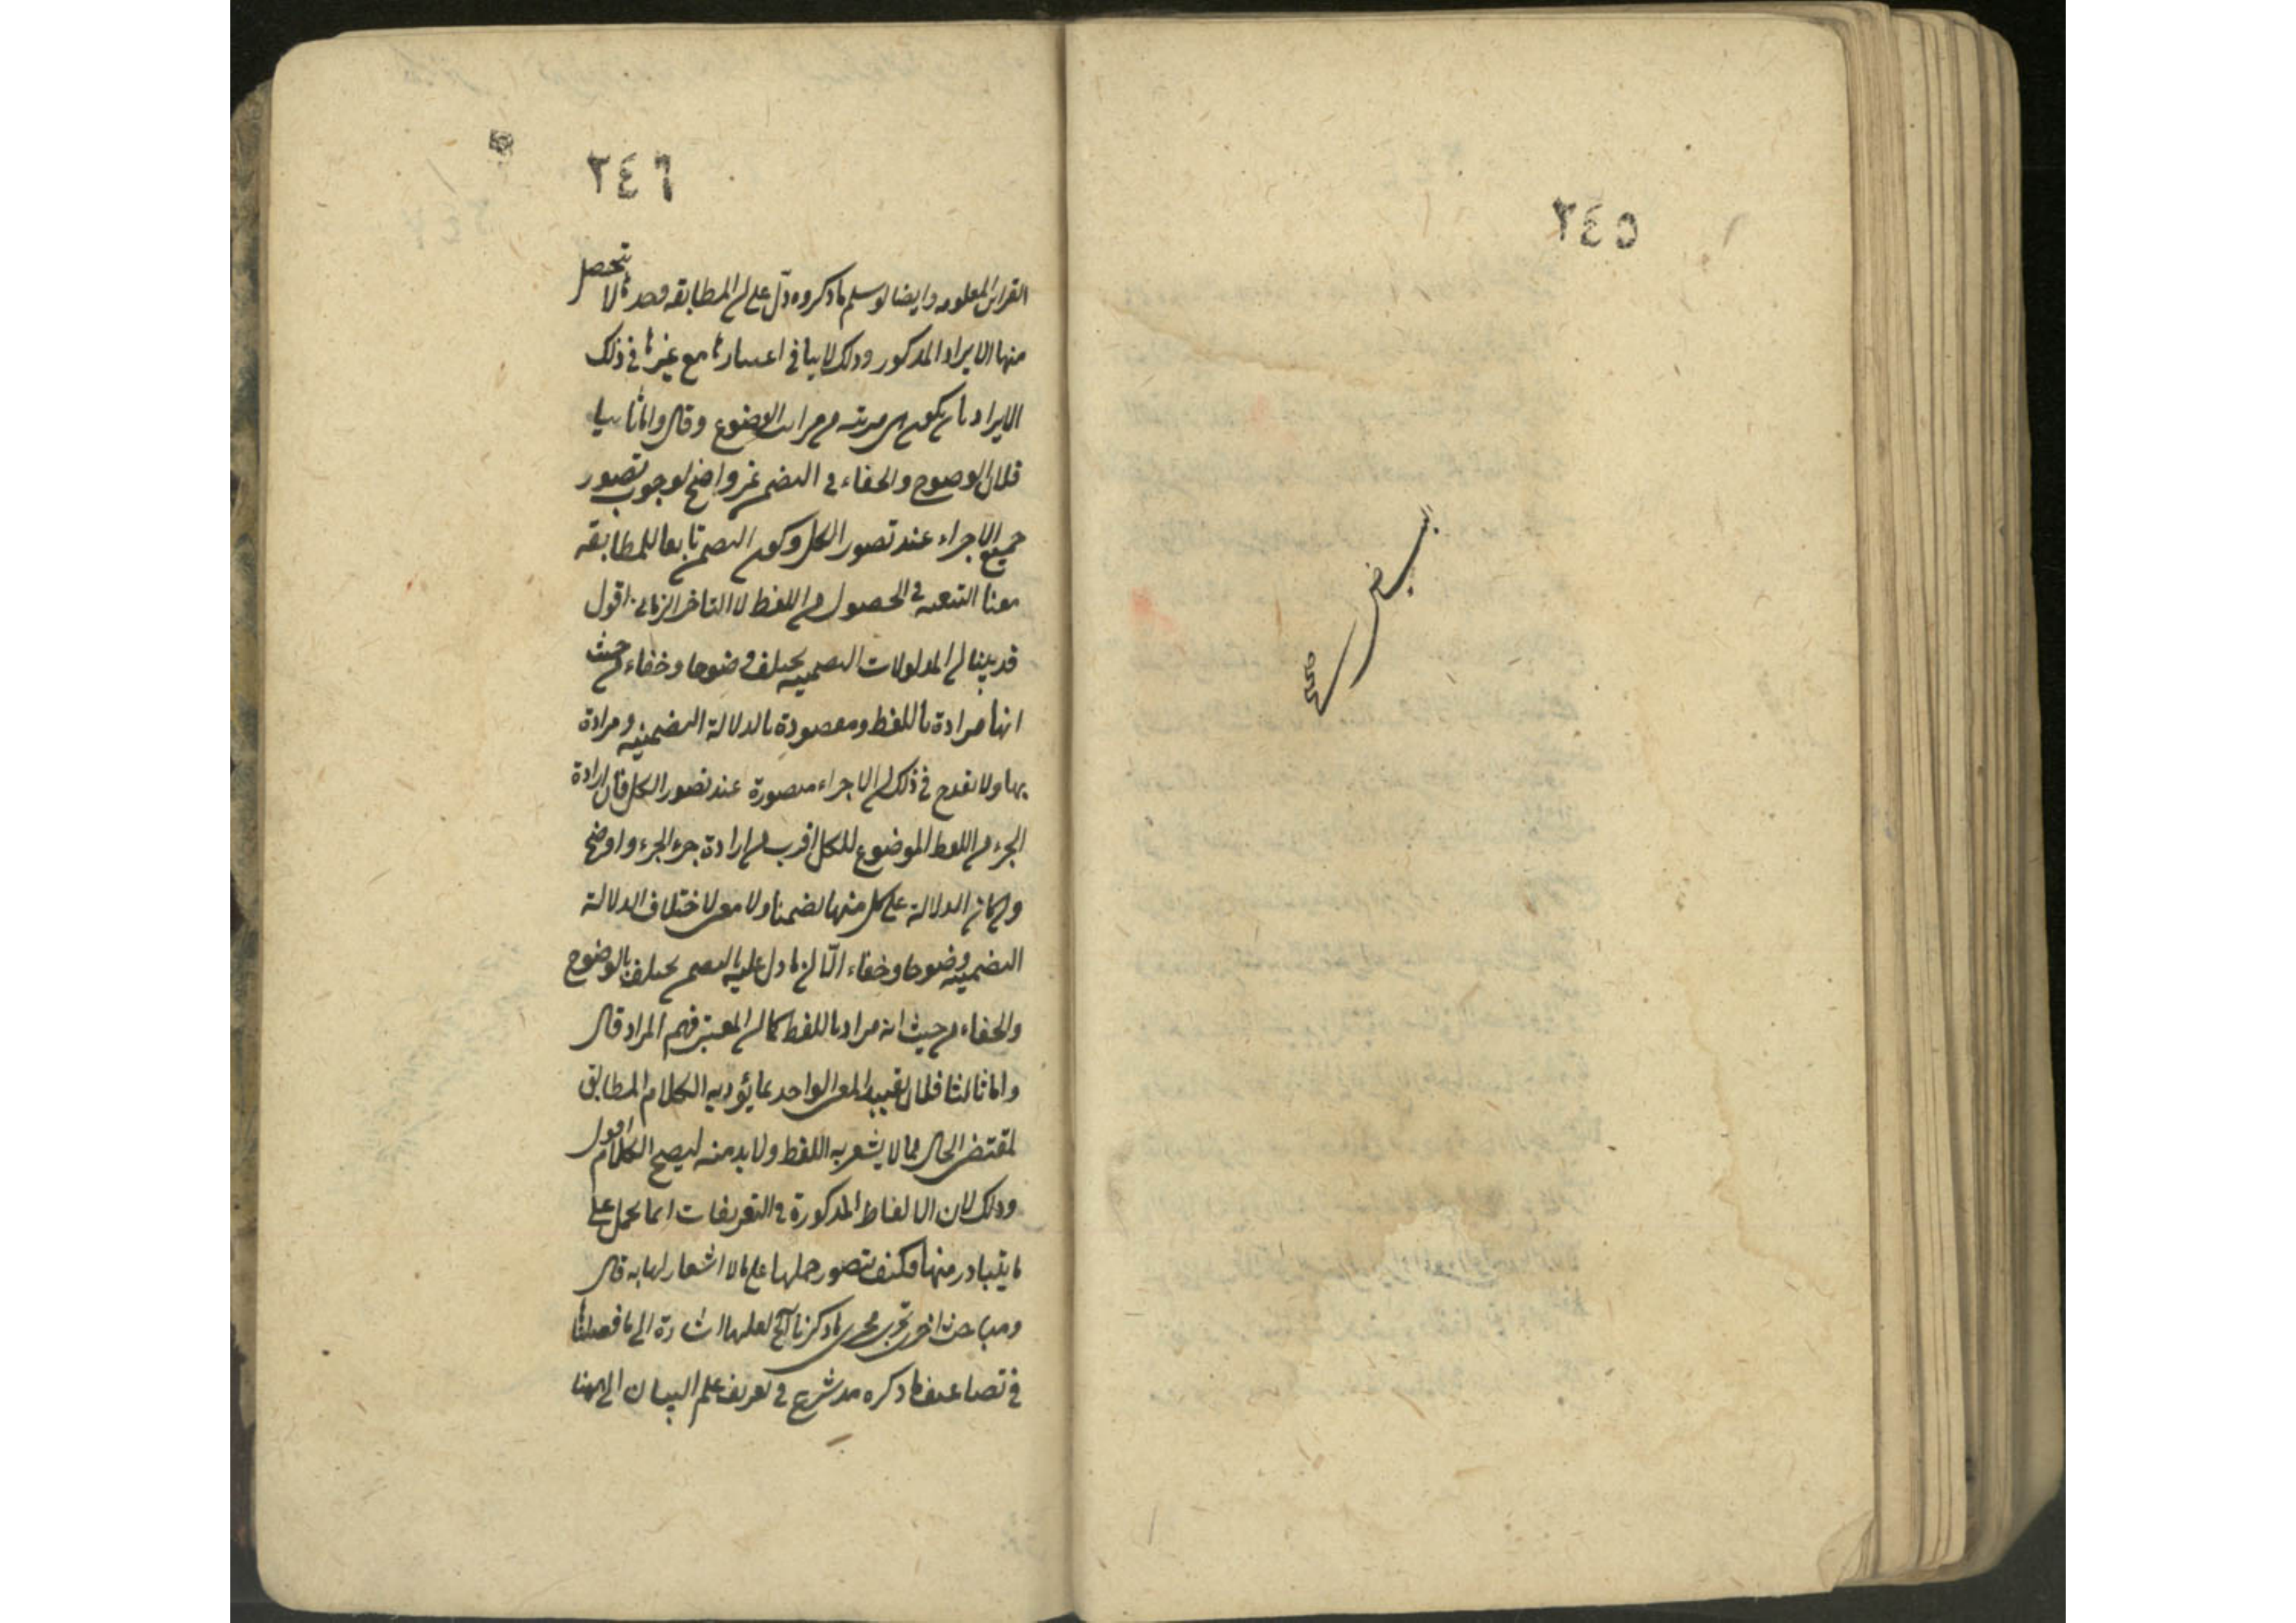 ٢٤٥
بيض
صح
٢٤٦
القراين المعلومه وايضا لو سلم ما ذكروه دل على ان المطابقه وحدها لا يتحصل
منها الايراد المذكور وذلك لا ينافي اعتبارها مع غيرها في ذلك
الايراد بان يكون هي مرتبه من مراتب الوضوح وقال واما ثانيا
فلان الوضوح والخفاء في التضمن غير واضح لوجوب تصور
جميع الاجزاء عند تصور الكل وكون التضمن تابعا للمطابقه
معنا التبعيه في الحصول من اللفظ لا التاخر الزماني اقول
قد بينا ان المدلولات التضمنيه يختلف وضوحا وخفاء من حيث
انها مرادة باللفظ ومقصودة بالدلالة التضمنيه ومرادة
بها ولا يقدح في ذلك ان الاجزاء متصورة عند تصور الكل فان ارادة
الجزء من اللفظ الموضوع للكل اقرب من ارادة جزء الجزء واوضح
وان كان الدلالة على كل منها تضمنا ولا معنى لاختلاف الدلالة
التضمنيه وضوحا وخفاء الا ان ما دل عليه بالتضمن يختلف بالوضوح
والخفاء من حيث انه مراد باللفظ كما ان المعتبر فهم المراد قال
واما ثالثا فلان تقييد المعنى الواحد بما يؤديه الكلام المطابق
لمقتضى الحال مما لا يشعر به اللفظ ولا بد منه ليصح الكلام اقول
وذلك لان الالفاظ المذكورة في التعريفات انما يحمل على
ما يتبادر منها فكيف يتصور حملها على ما لا اشعار لها به قال
ومباحث اخرى تجرى مجرى ما ذكرنا الخ لعلها اشارة الى ما فصلناها
في تضاعيف ما ذكره مذ شرع في تعريف علم البيان الى ههنا